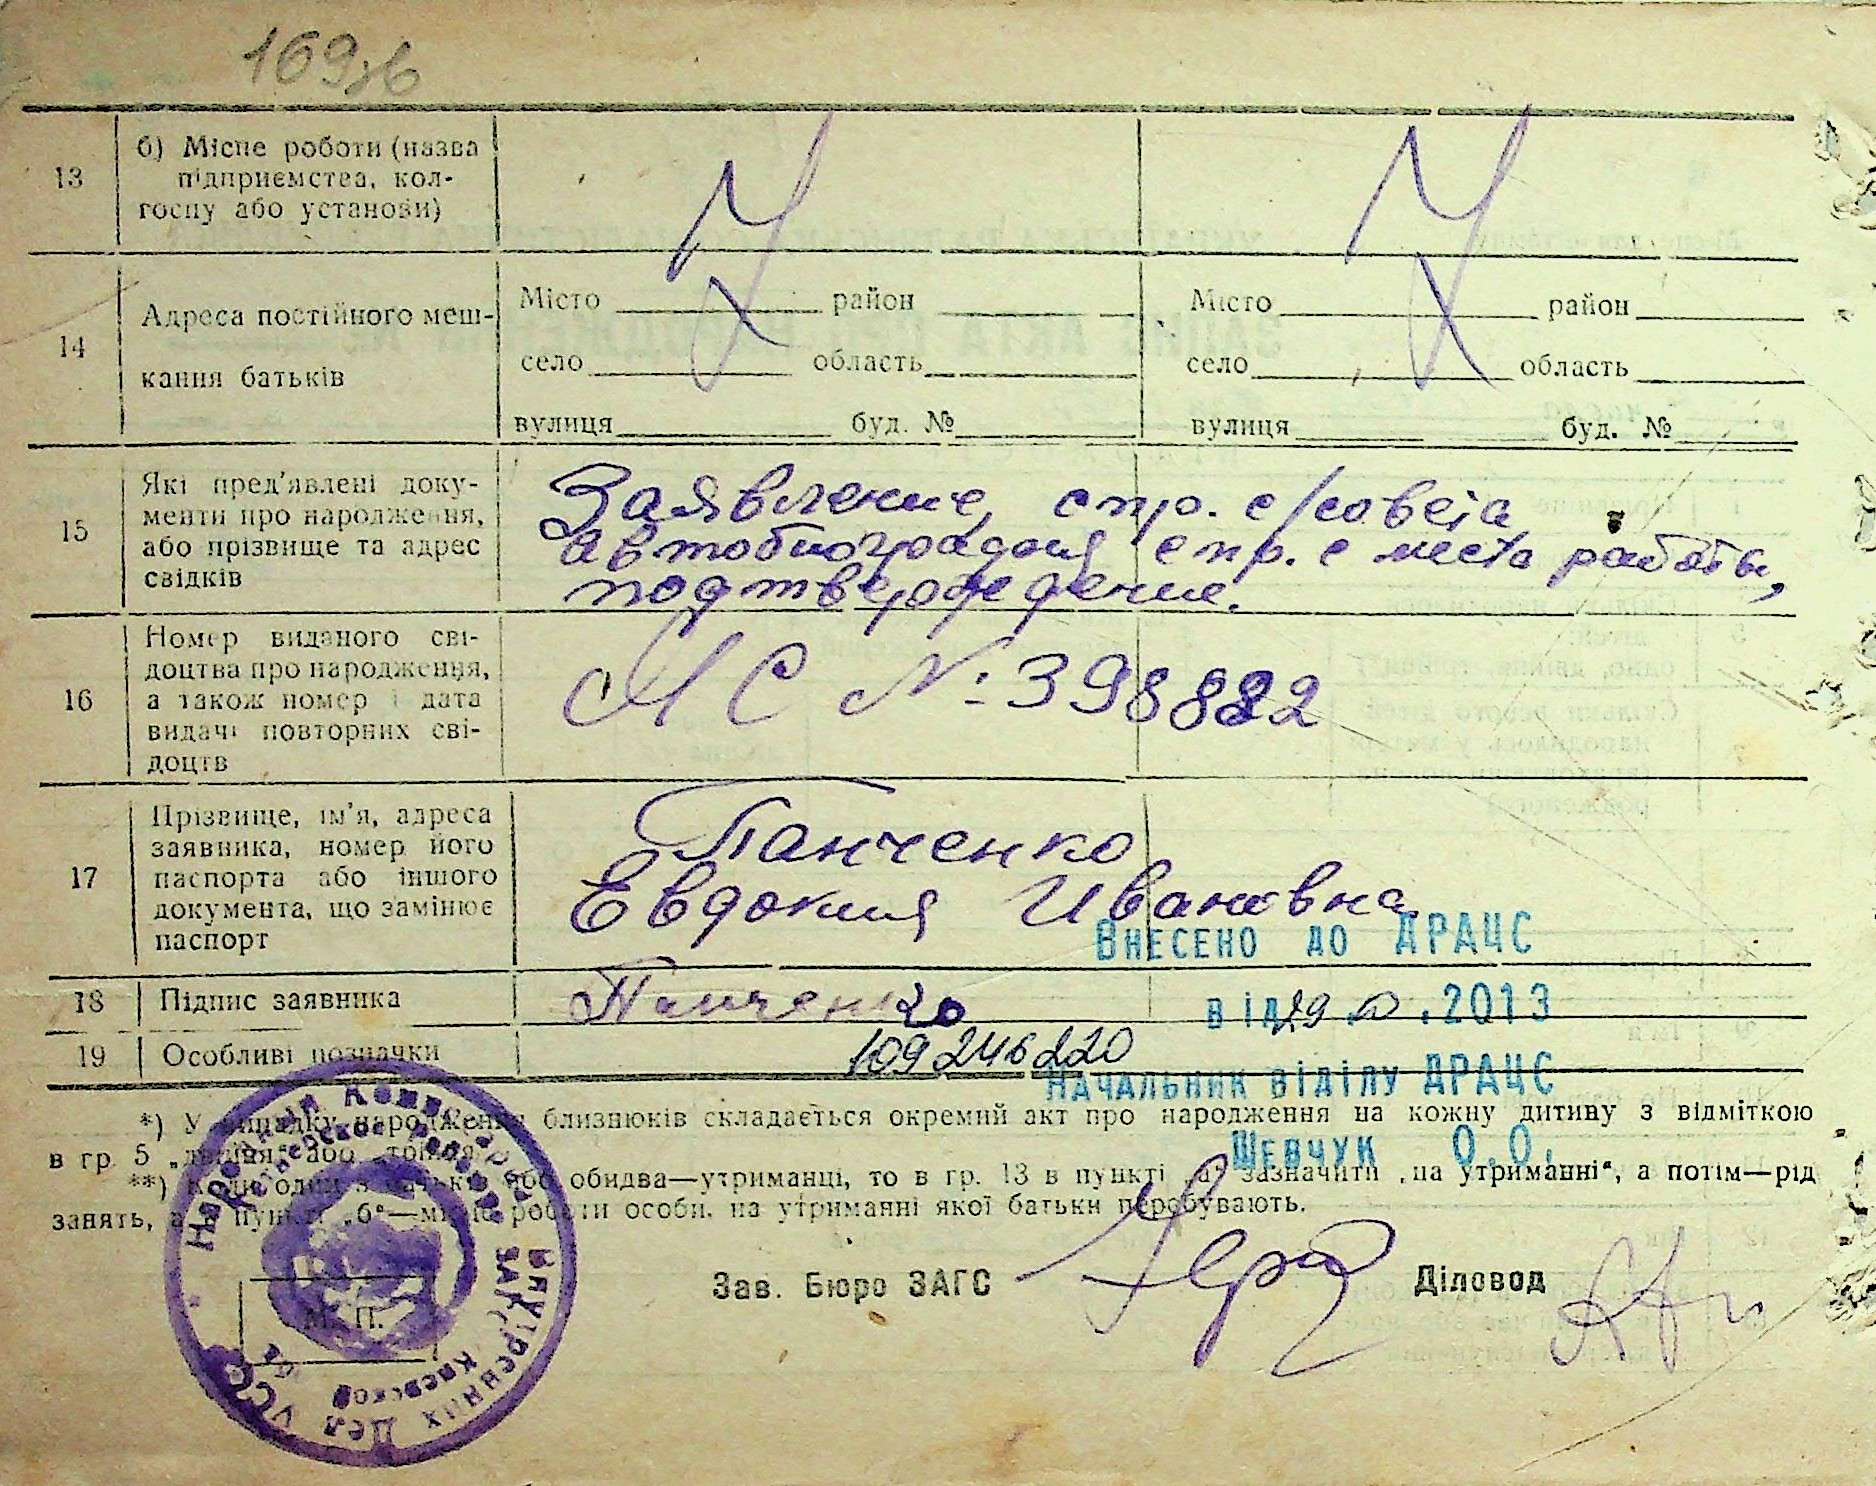 169зв
13
б) Місце роботи (назва
підприємства, кол-
госпу або установи)
14
Адреса постійного меш-
кання батьків
Місто район
село область
вулиця буд. №
Місто район
село область
вулиця буд. №
15
Які пред'явлені доку-
менти про народження,
або прізвище та адрес
свідків
Заявление, спр. с/совета
автобиография спр. с места работы,
подтверждение.
16
Номер виданого сві-
доцтва про народження,
а також номер і дата
видачі повторних сві-
доцтв
МС №: 398882
17
Прізвище, ім'я, адреса
заявника, номер його
паспорта або іншого
документа, що замінює
паспорт
Панченко
Евдокия Ивановна
Внесено до ДРАЦС
18
Підпис заявника
Панченко
від 29 .2013
19
Особливі позначки
109246220
Начальник відділу ДРАЦС
*) У випадку народження близнюків складається окремий акт про народження на кожну дитину з відміткою
в гр. 5 „двійня“ або „трійня“
Шевчук О.О.
**) Коли один з батьків або обидва—утриманці, то в гр. 13 в пункті „а“ зазначити „на утриманні“, а потім—рід
занять, а в пункті „б“—місце роботи особи, на утриманні якої батьки перебувають.
Зав. Бюро ЗАГС
Діловод
М. П.
Народный Комиссариат Внутренних Дел УССР
ЗАГС Киевской